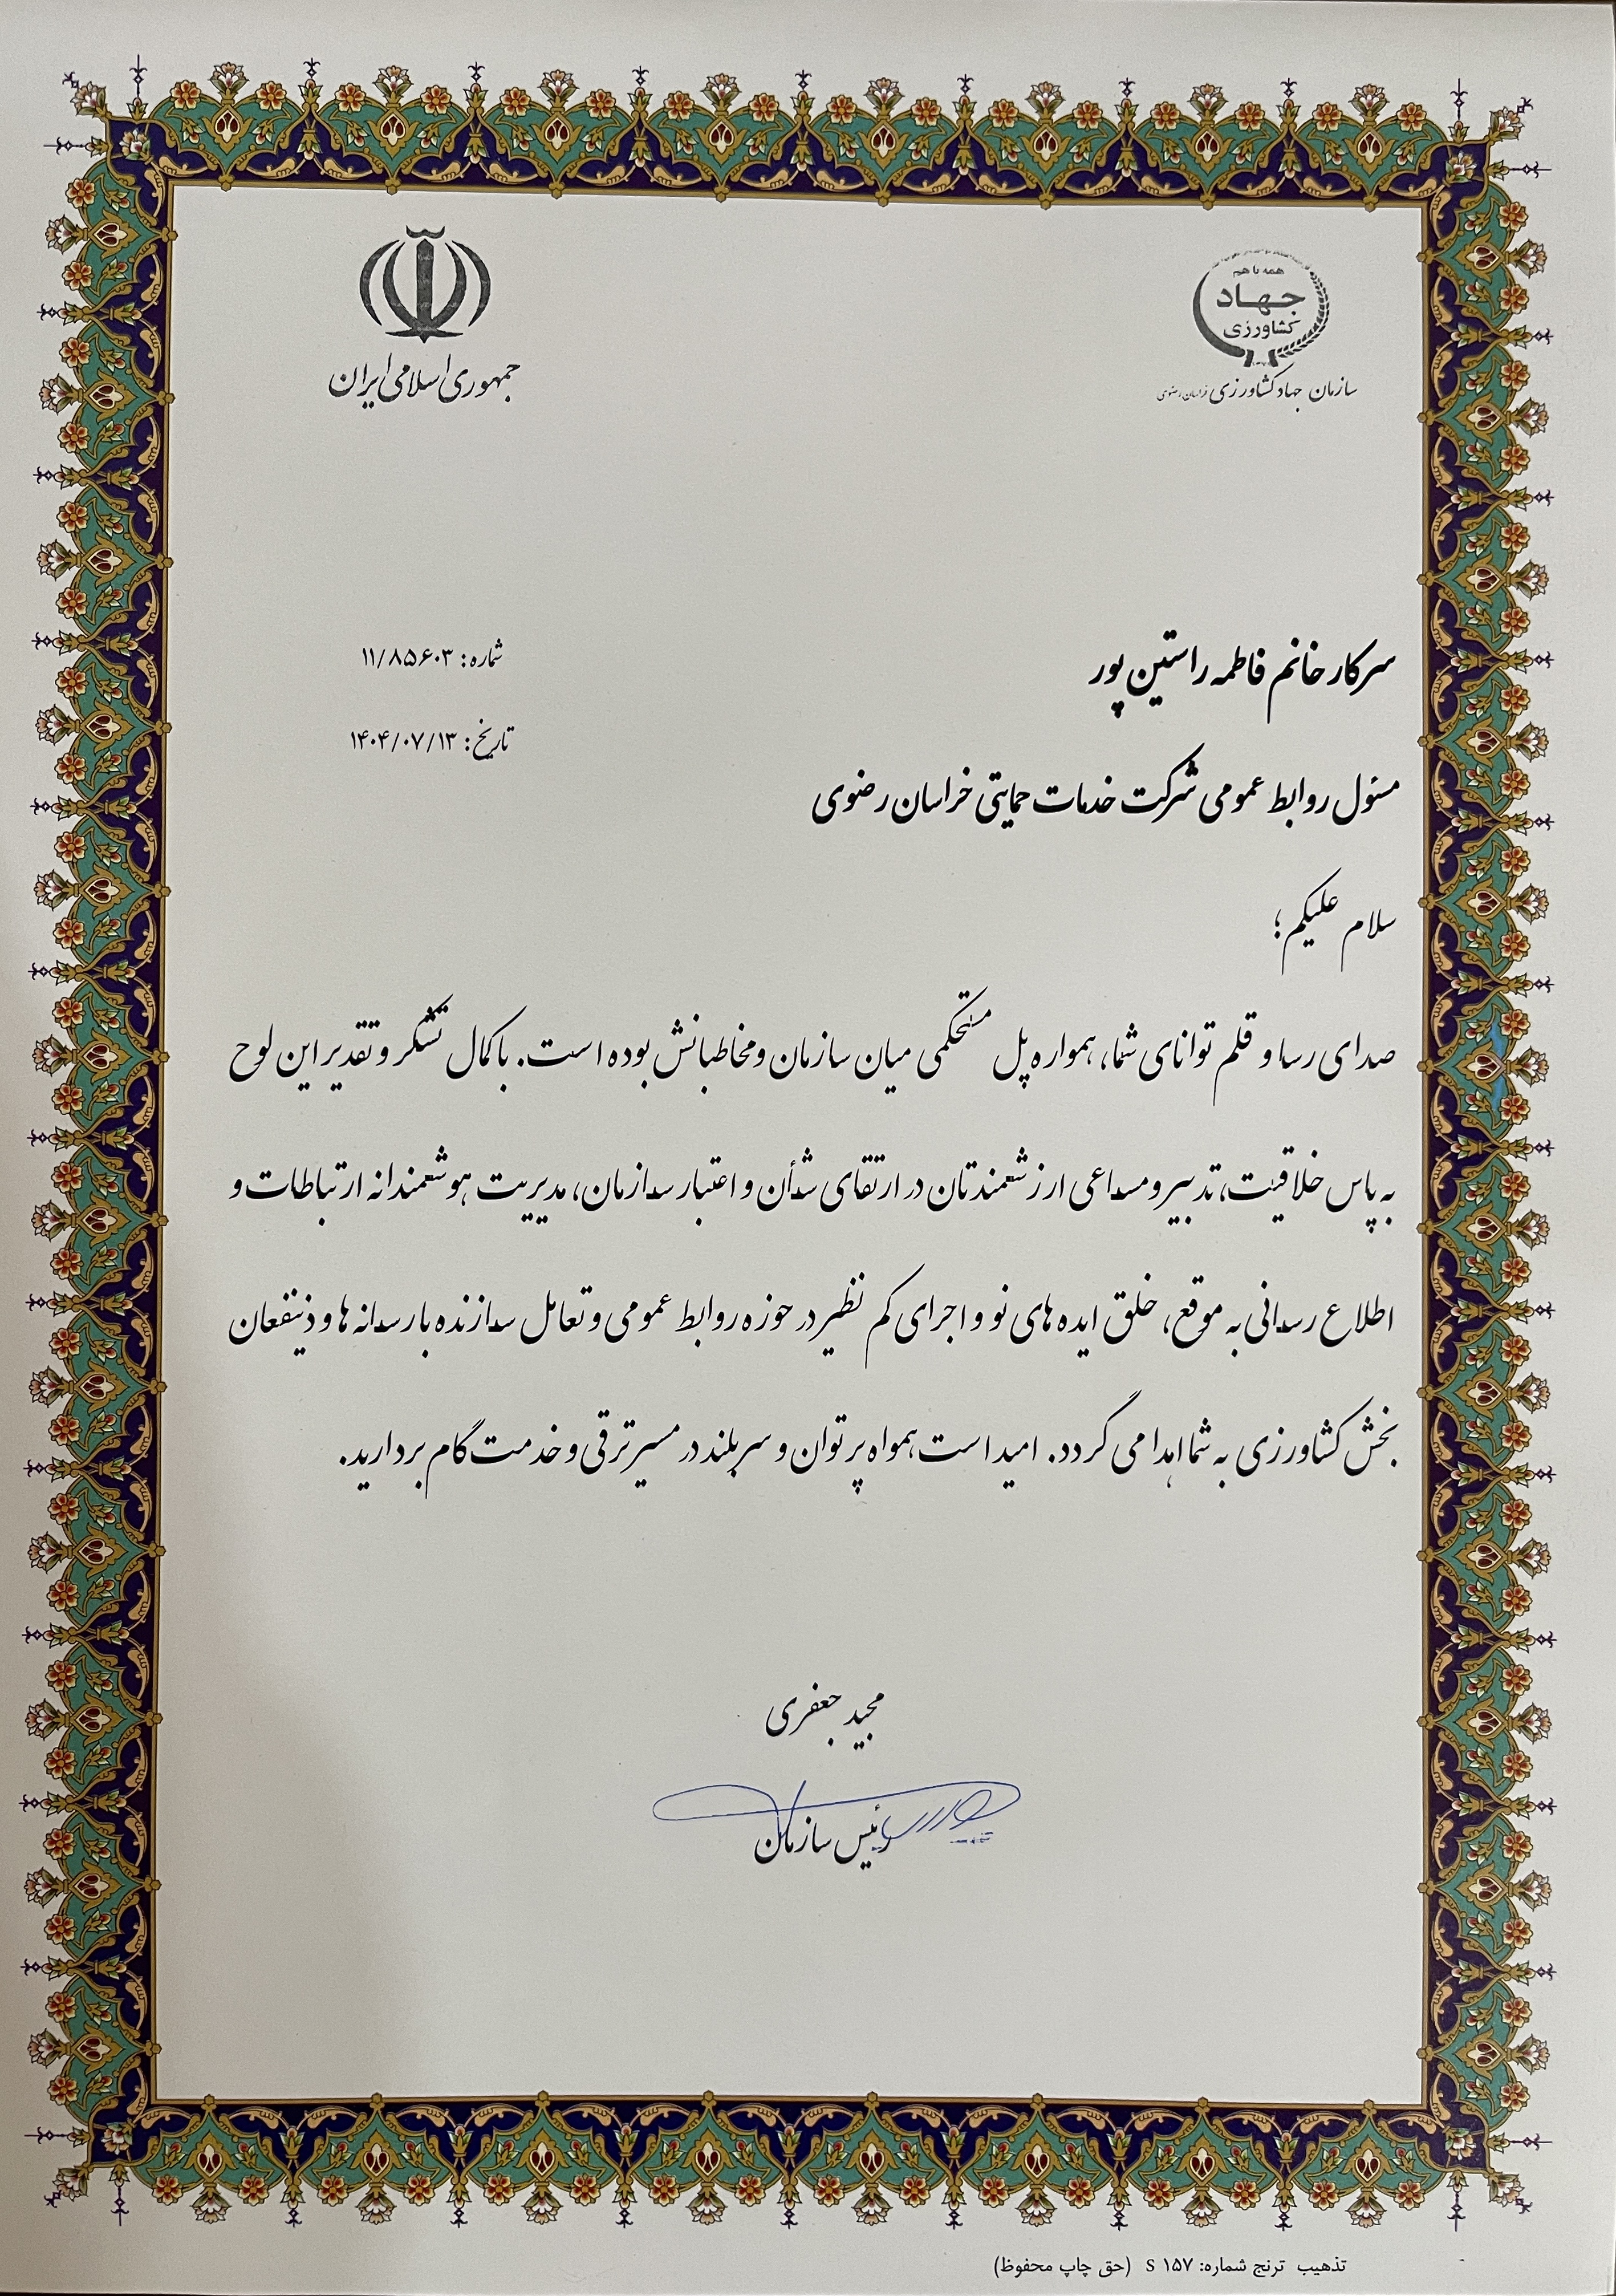 جمهوری اسلامی ایران
همه با هم
جهاد
کشاورزی
سازمان جهاد کشاورزی خراسان رضوی
شماره: ۱۱/۸۵۶۰۳
تاریخ: ۱۴۰۴/۰۷/۱۳
سرکار خانم فاطمه راستین پور
مسئول روابط عمومی شرکت خدمات حمایتی خراسان رضوی
سلام علیکم؛
صدای رسا و قلم توانای شما، همواره پل مستحکمی میان سازمان و مخاطبانش بوده است. با کمال تشکر و تقدیر این لوح
به پاس خلاقیت، تدبیر و مساعی ارزشمندتان در ارتقای شأن و اعتبار سازمان، مدیریت هوشمندانه ارتباطات و
اطلاع رسانی به موقع، خلق ایده های نو و اجرای کم نظیر در حوزه روابط عمومی و تعامل سازنده با رسانه ها و ذینفعان
بخش کشاورزی به شما اهدا می گردد. امید است همواه پر توان و سربلند در مسیر ترقی و خدمت گام بردارید.
مجید جعفری
رئیس سازمان
تذهیب ترنج شماره: S ۱۵۷ (حق چاپ محفوظ)